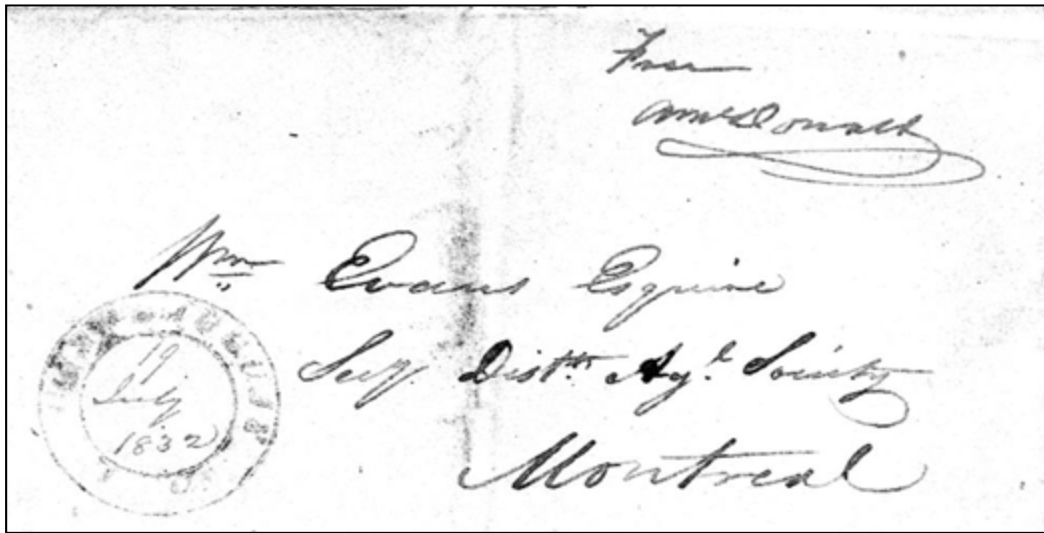 Free
AMcDonald
Wm Evans Esquire
Secy. Distt. Agl. Society
Montreal
19
July
1832